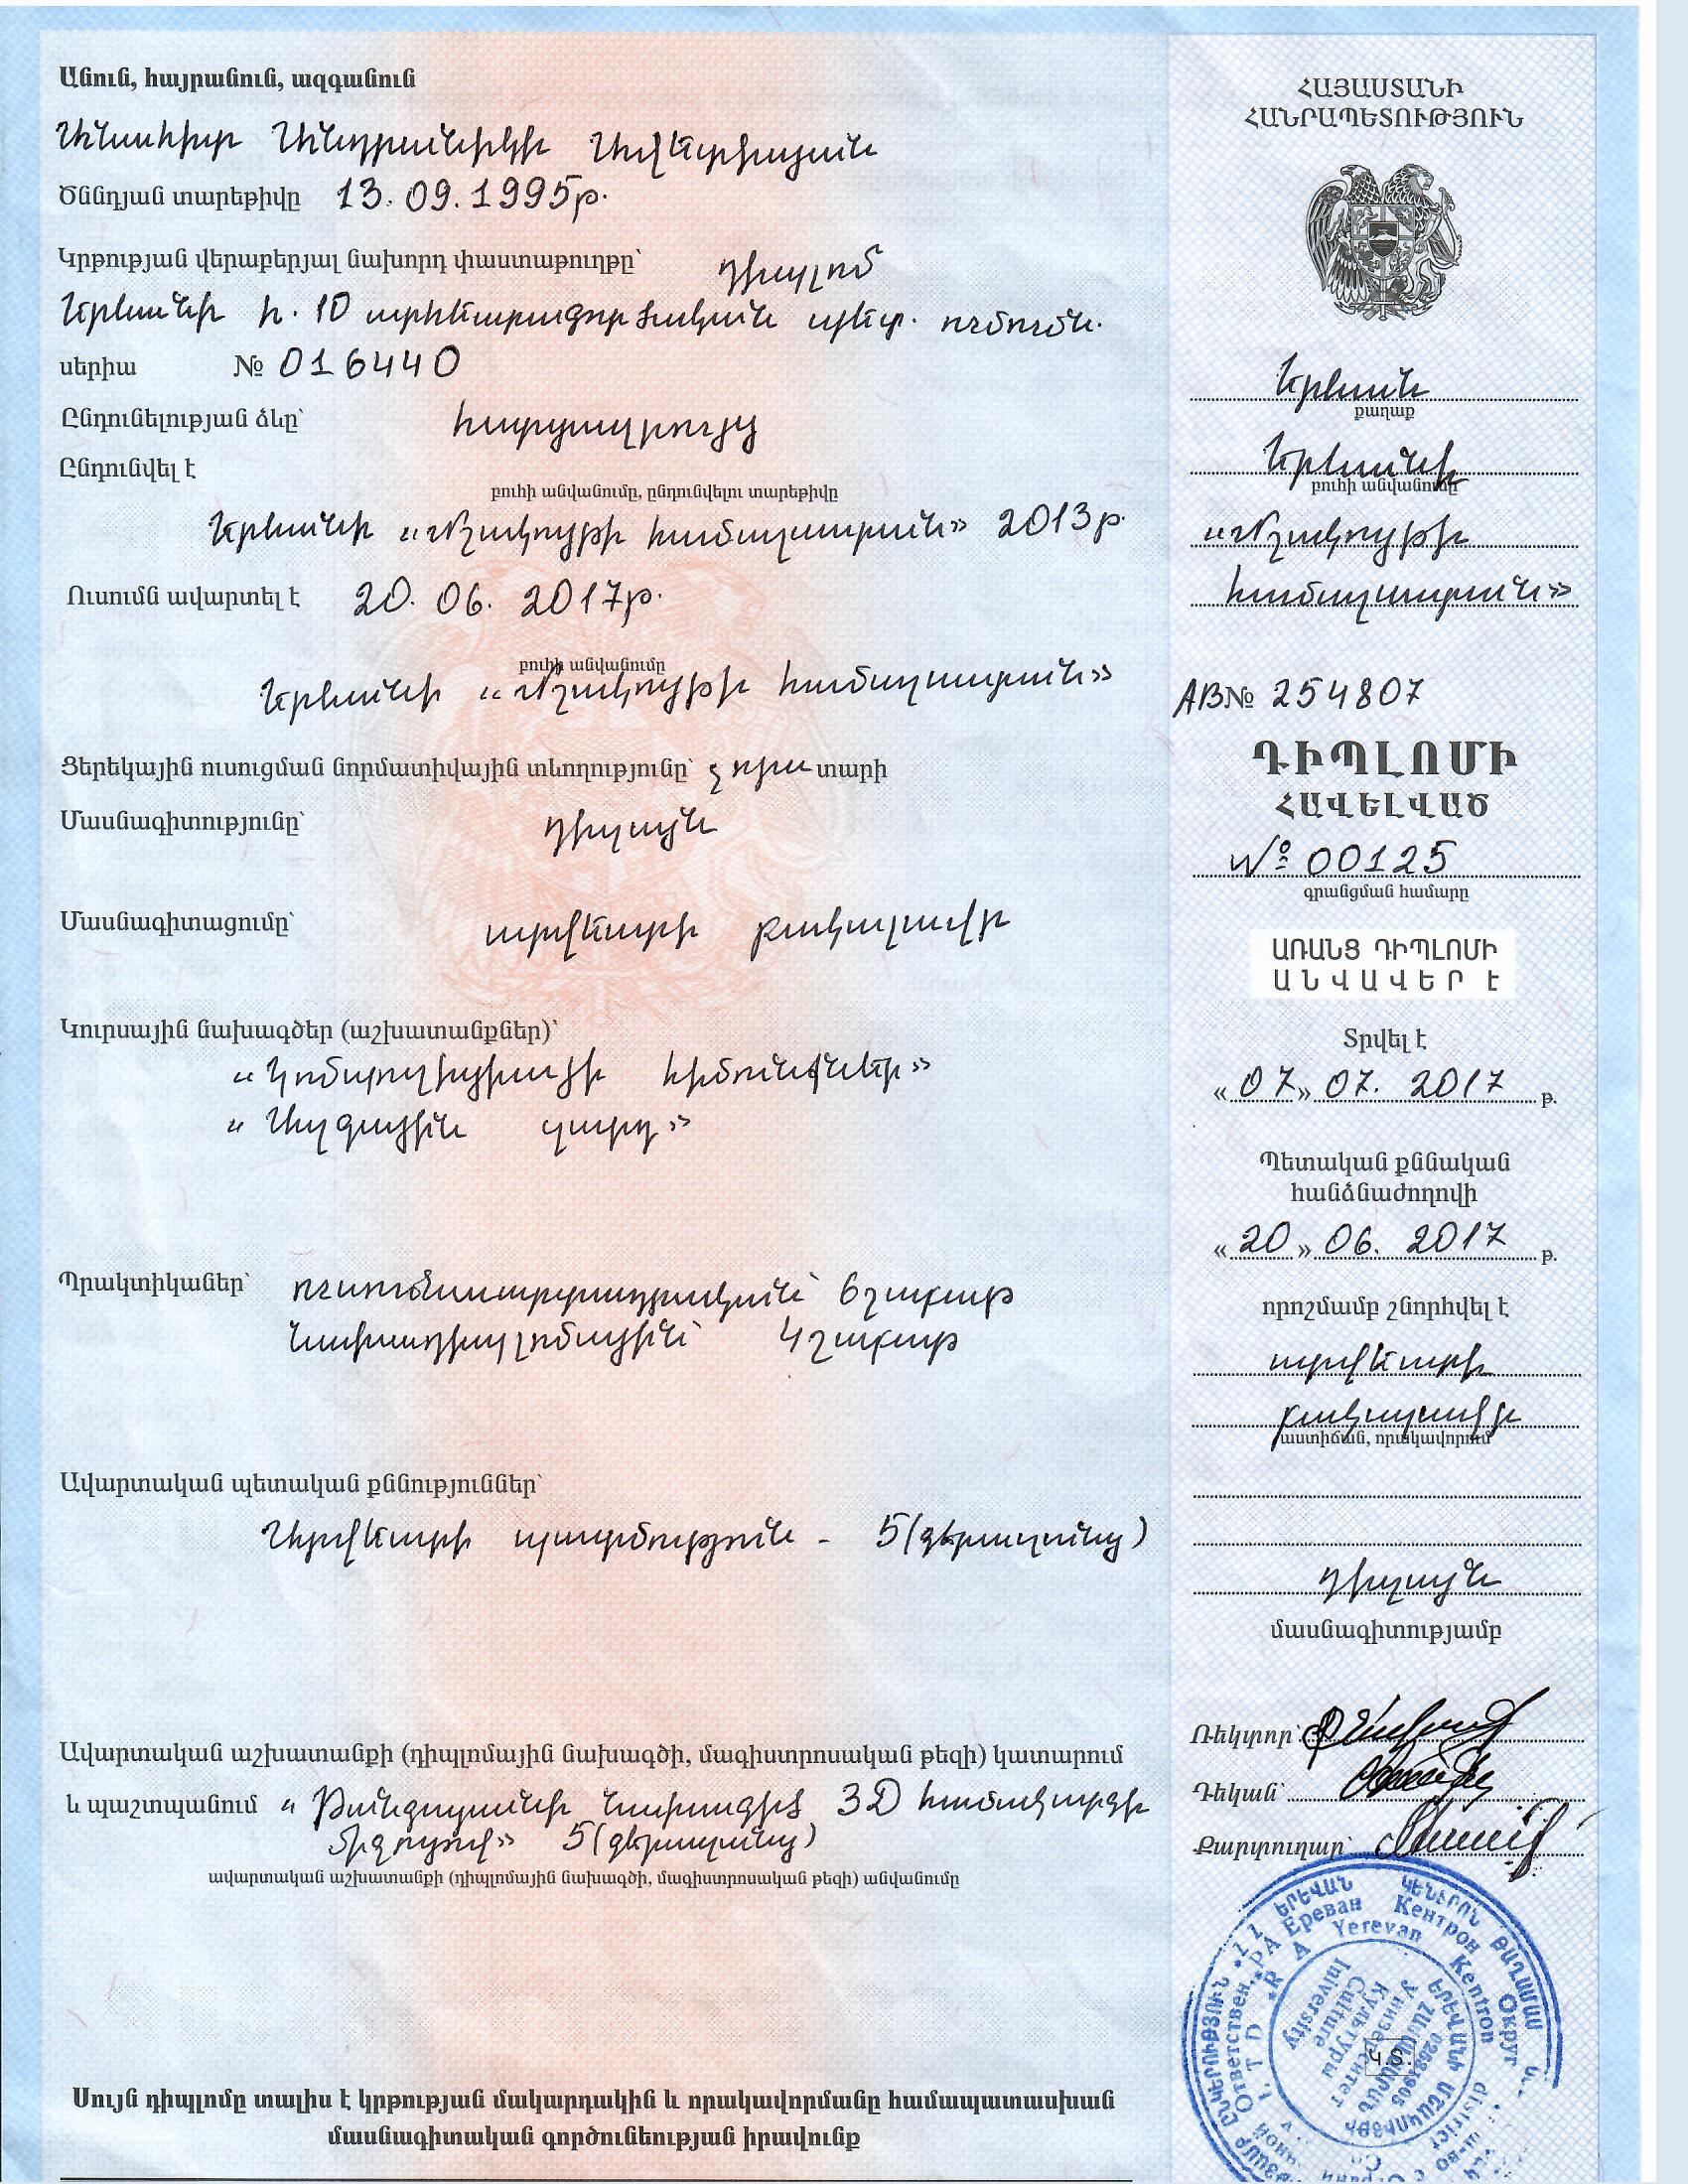 Անուն, հայրանուն, ազգանուն
Անդրանիկի Ավետիսյան
Ծննդյան տարեթիվը 13.09.1995թ.
Կրթության վերաբերյալ նախորդ փաստաթուղթը՝ դիպլոմ
Երևանի հ. 10 արհեստագործական պետ. ուսումն.
սերիա № 016440
Ընդունելության ձևը՝ հարցազրույց
Ընդունվել է
բուհի անվանումը, ընդունվելու տարեթիվը
Երևանի «Մշակույթի համալսարան» 2013թ.
Ուսումն ավարտել է 20. 06. 2017թ.
բուհի անվանումը
Երևանի «Մշակույթի համալսարան»
Ցերեկային ուսուցման նորմատիվային տևողությունը՝ չորս տարի
Մասնագիտությունը՝ դիզայն
Մասնագիտացումը՝ արվեստի բակալավր
Կուրսային նախագծեր (աշխատանքներ)՝
«Կոմպոզիցիայի հիմունքներ»
«Ազգային զարդ»
Պրակտիկաներ՝ ուսումնաարտադրական՝ 6 շաբաթ
Նախադիպլոմային՝ 4 շաբաթ
Ավարտական պետական քննություններ՝
Արվեստի պատմություն - 5(գերազանց)
Ավարտական աշխատանքի (դիպլոմային նախագծի, մագիստրոսական թեզի) կատարում
և պաշտպանում «Թանգարանի նախագիծ 3D համակարգի
միջոցով» 5(գերազանց)
ավարտական աշխատանքի (դիպլոմային նախագծի, մագիստրոսական թեզի) անվանումը
Սույն դիպլոմը տալիս է կրթության մակարդակին և որակավորմանը համապատասխան
մասնագիտական գործունեության իրավունք
ՀԱՅԱՍՏԱՆԻ
ՀԱՆՐԱՊԵՏՈՒԹՅՈՒՆ
Երևան
քաղաք
Երևանի
բուհի անվանումը
«Մշակույթի
համալսարան»
AB№ 254807
ԴԻՊԼՈՄԻ
ՀԱՎԵԼՎԱԾ
№ 00125
գրանցման համարը
ԱՌԱՆՑ ԴԻՊԼՈՄԻ
ԱՆՎԱՎԵՐ Է
Տրվել է
«07» 07. 2017 թ.
Պետական քննական
հանձնաժողովի
«20» 06. 2017 թ.
որոշմամբ շնորհվել է
արվեստի
բակալավր
աստիճան, որակավորում
դիզայն
մասնագիտությամբ
Ռեկտոր՝
Դեկան՝
Քարտուղար՝
ԵՐԵՎԱՆ ԿԵՆՏՐՈՆ
РА Ереван Кентрон Округ
RA Yerevan Kentron district
ԵՐԵՎԱՆԻ ՄՇԱԿՈՒՅԹԻ
ՀԱՄԱԼՍԱՐԱՆ
02681905
Университет
Культуры
Culture
University
Կ.Տ.